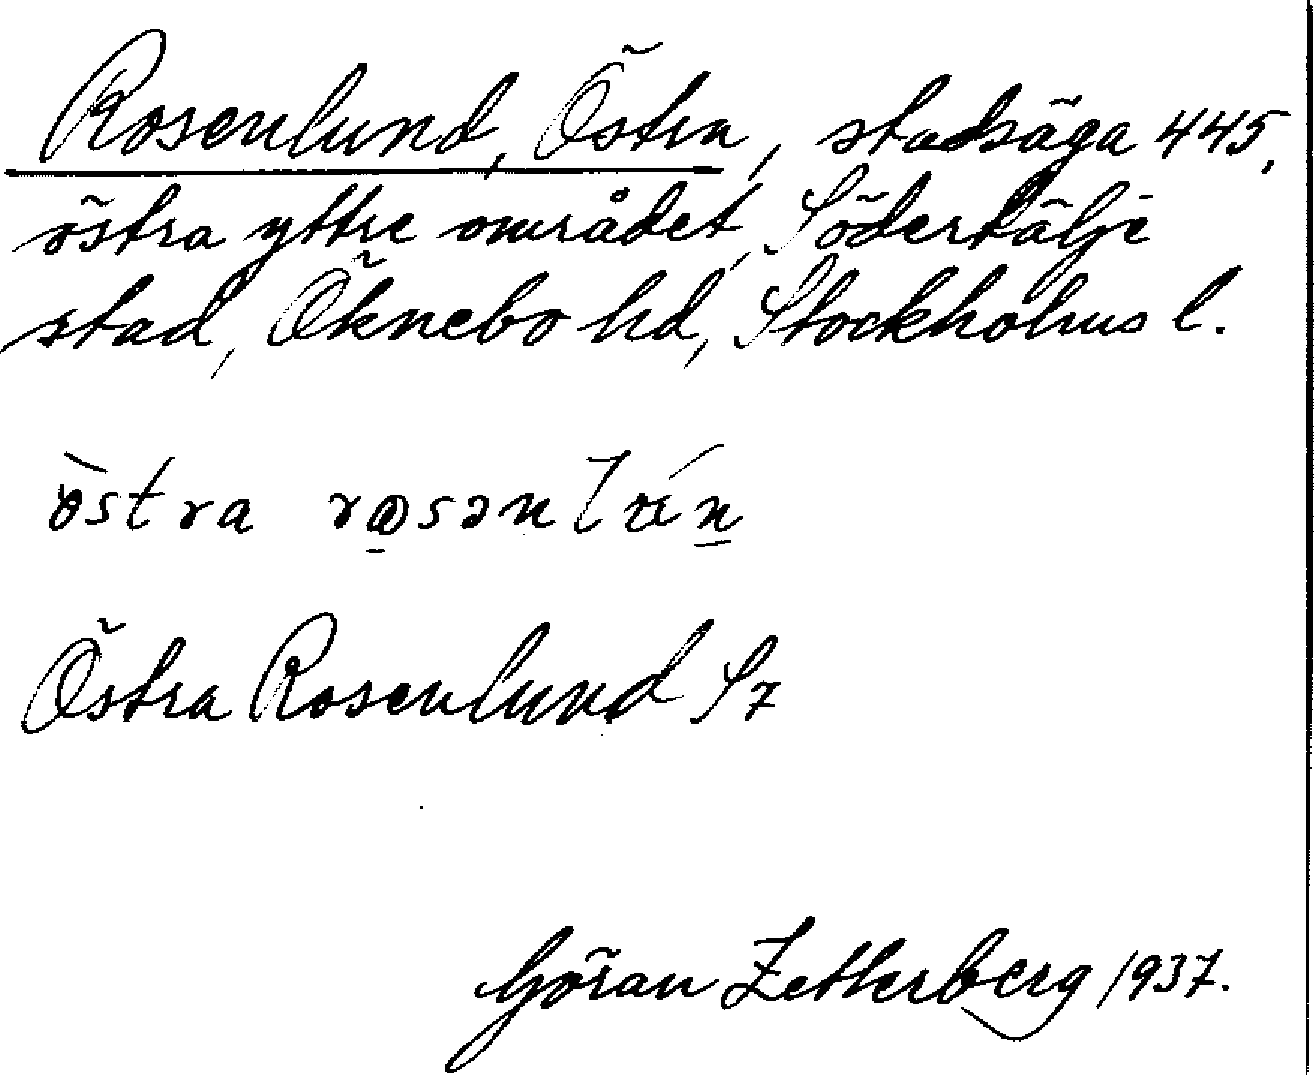 Rosenlund, Östra, stadsäga 445,
östra yttre området, Södertälje
stad, Öknebo hd, Stockholms l.
östra
Östra Rosenlund
Göran Zetterberg 1937.